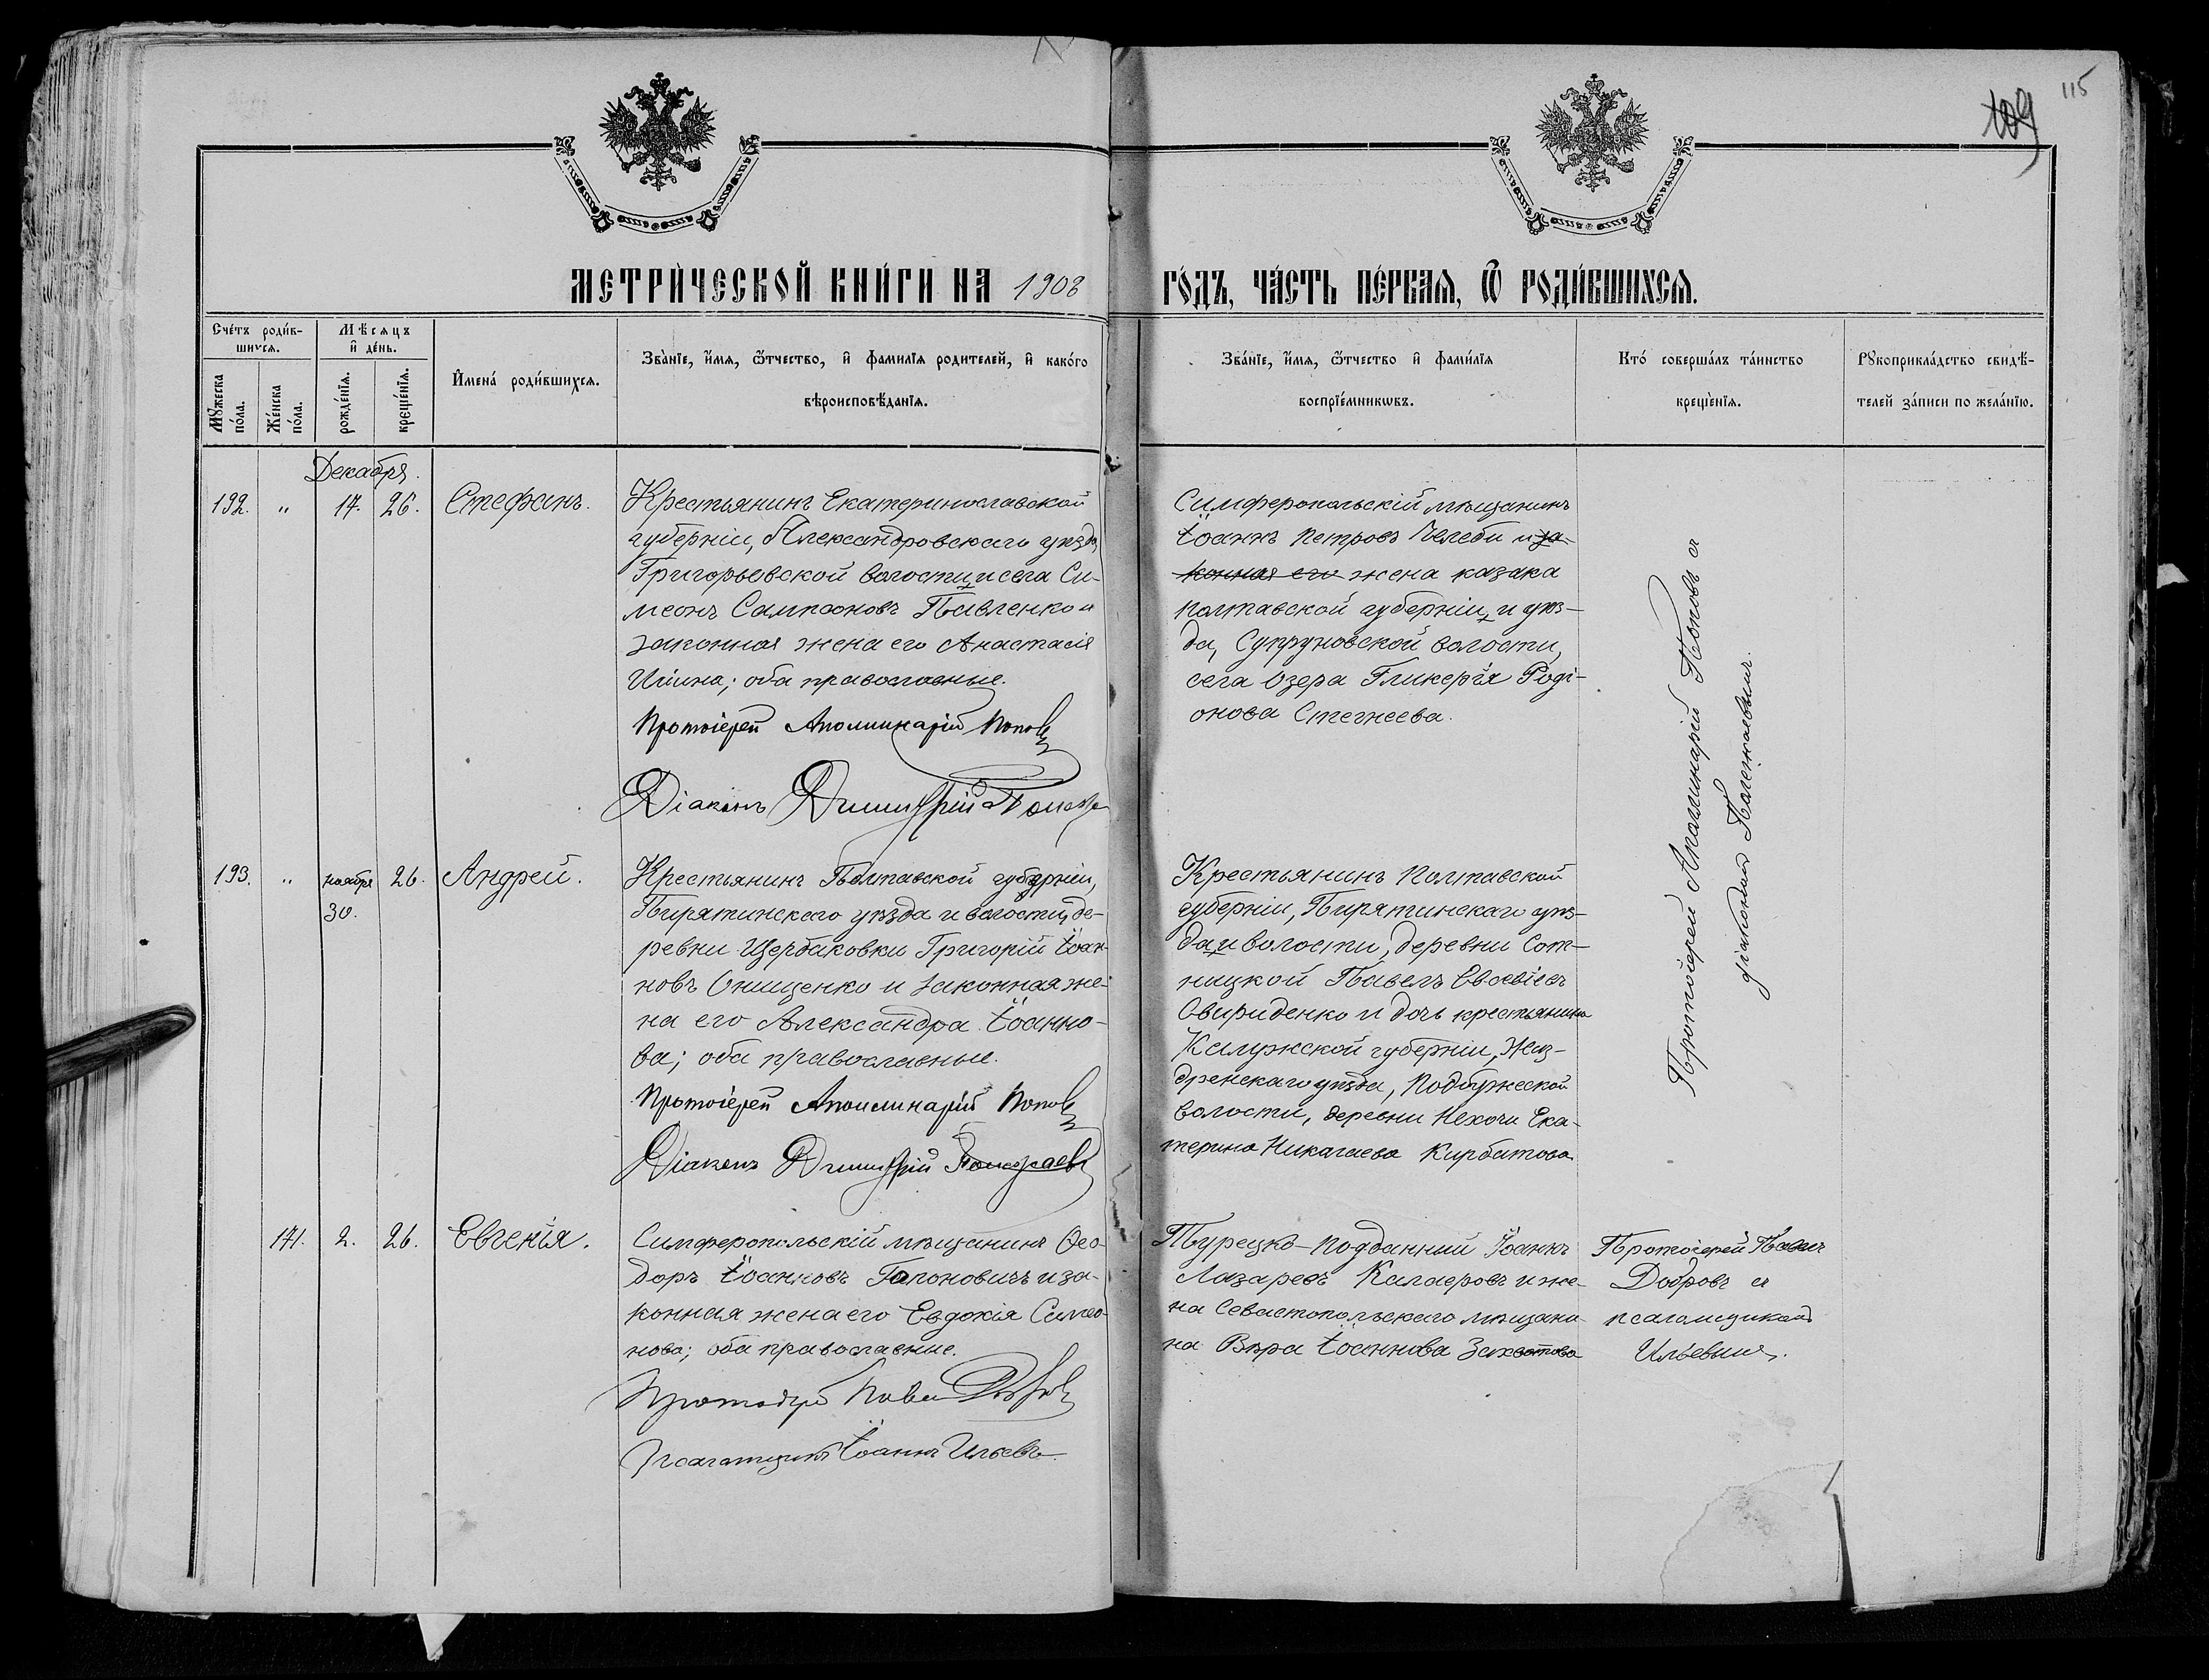 115
109
МЕТРИ́ЧЕСКОЙ КНИ́ГИ НА 1908
ГО́ДЪ, ЧА́СТЬ ПЕ́РВАЯ, Ѿ РОДИ́ВШИХСЯ.
Сче́тъ роди́в-
шихся.
Мꙋ́жеска по́ла.
Же́нска по́ла.
Мѣ́сяцъ
и҆ де́нь.
рожде́нїя.
креще́нїя.
И҆мена́ роди́вшихся.
Зва́нїе, и҆́мя, ѻ҆́тчество, и҆ фами́лїя роди́телей, и҆ како́го
вѣроисповѣ́данїя.
Зва́нїе, и҆́мя, ѻ҆́тчество и҆ фами́лїя
воспрїе́мниковъ.
Кто́ соверша́лъ та́инство
креще́нїя.
Рꙋкоприкла́дство свидѣ́-
телей за́писи по жела́нїю.
Декабря.
192. " 17. 26. Стефанъ.
Крестьянинъ Екатеринославской
губерніи, Александровскаго уѣзда,
Григорьевской волости и села Си-
меонъ Сампсоновъ Павленко и
законная жена его Анастасія
Ильина; оба православные.
Протоіерей Аполлинарій Поповъ
Діаконъ Димитрій
Симферопольскій мѣщанинъ
Іоаннъ Петровъ Челеби и за-
конная его жена казака
Полтавской губерніи и уѣз-
да, Супруновской волости,
села Озера Гликерія Родi-
онова Стегнеева.
Протоіерей Аполлинарій Поповъ съ
діакономъ Полежаевымъ.
193. " ноября 26. Андрей.
30.
Крестьянинъ Полтавской губерніи,
Пирятинскаго уѣзда и волости, де-
ревни Щербаковки Григорій Іоан-
новъ Онищенко и законная же-
на его Александра Іоанно-
ва; оба православные.
Протоіерей Аполлинарій Поповъ
Діаконъ Димитрій Полежаевъ
Крестьянинъ Полтавской
губерніи, Пирятинскаго уѣз-
да и волости, деревни Сот-
ницкой Павелъ Евсевіевъ
Свириденко и дочь крестьянина
Калужской губерніи, Жиз-
дренскаго уѣзда, Подбужской
волости, деревни Нехочи Ека-
терина Николаева Курбатова.
171. 2. 26. Евгенія.
Симферопольскій мѣщанинъ Ѳео-
доръ Іоанновъ Гапоновичъ и за-
конная жена его Евдокія Симео-
нова; оба православные.
Протоіерей Павелъ Добровъ
Псаломщикъ Іоаннъ Ильевъ.
Турецко-подданный Іоаннъ
Лазаревъ Калаеровъ и же-
на Севастопольскаго мѣщани-
на Вѣра Іоаннова
Протоіерей Павелъ
Добровъ съ
псаломщикомъ
Ильевымъ.